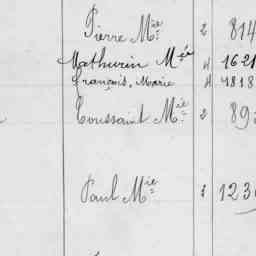 Pierre Mie 2 814
Mathurin Mie 4 1621
François, Marie 4 4818
Toussaint Mie 2 892
Paul Mie 1 1236